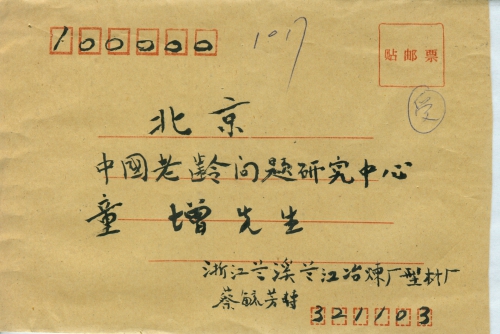 100000
1017
贴邮票
受
北京
中國老齡问题研究中心
童增先生
浙江兰溪兰江冶炼厂型材厂
蔡毓芳
321103